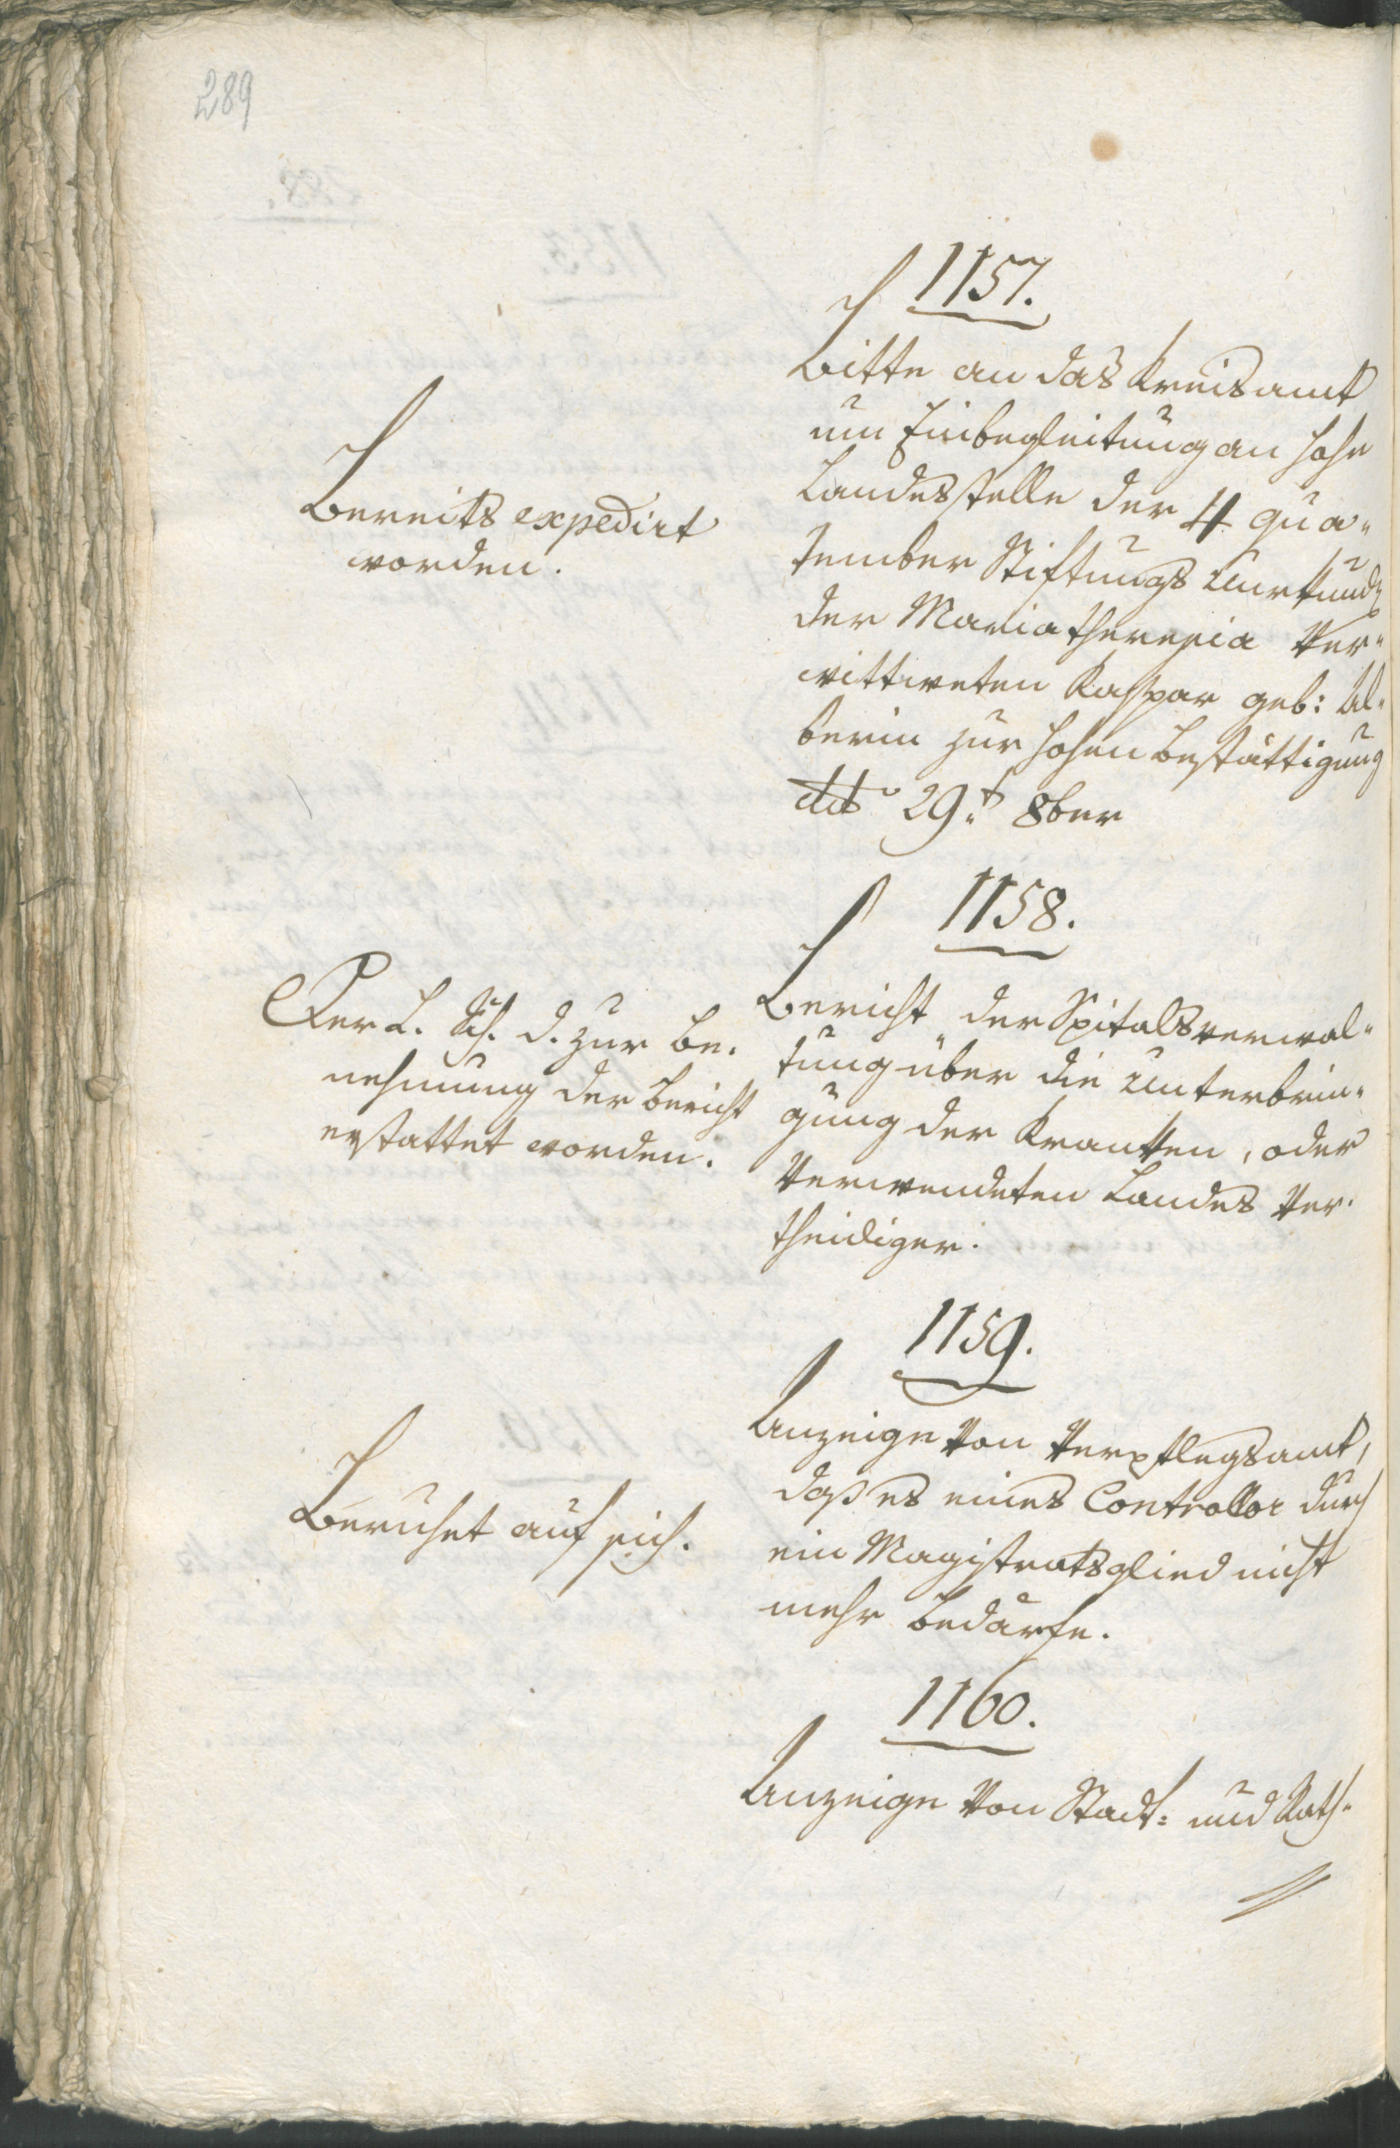 289
1157.
Bitte an das Kreisamt
um Einbegleitung an hohe
Landesstelle der 4 Qua-
tember Stiftungs Uurkunde
der Maria Theresia Ver-
wittweten Kaspar geb: Al-
berin zur hohen Bestättigung
ddto 29.t 8ber
Bereits expedirt
worden.
1158.
Bericht der Spitalsverwal-
tung über die Unterbrin-
gung der Kranken, oder
Verwendeten Landes Ver-
theidiger.
Per L. Sch. d. zur Be-
nehmung der Bericht
erstattet worden.
1159.
Anzeige Von Verpflegsamt,
daß es eines Controllor durch
ein Magistratsglied nicht
mehr bedarfe.
Beruhet auf sich.
1160.
Anzeige Von Stadt- und Rath-